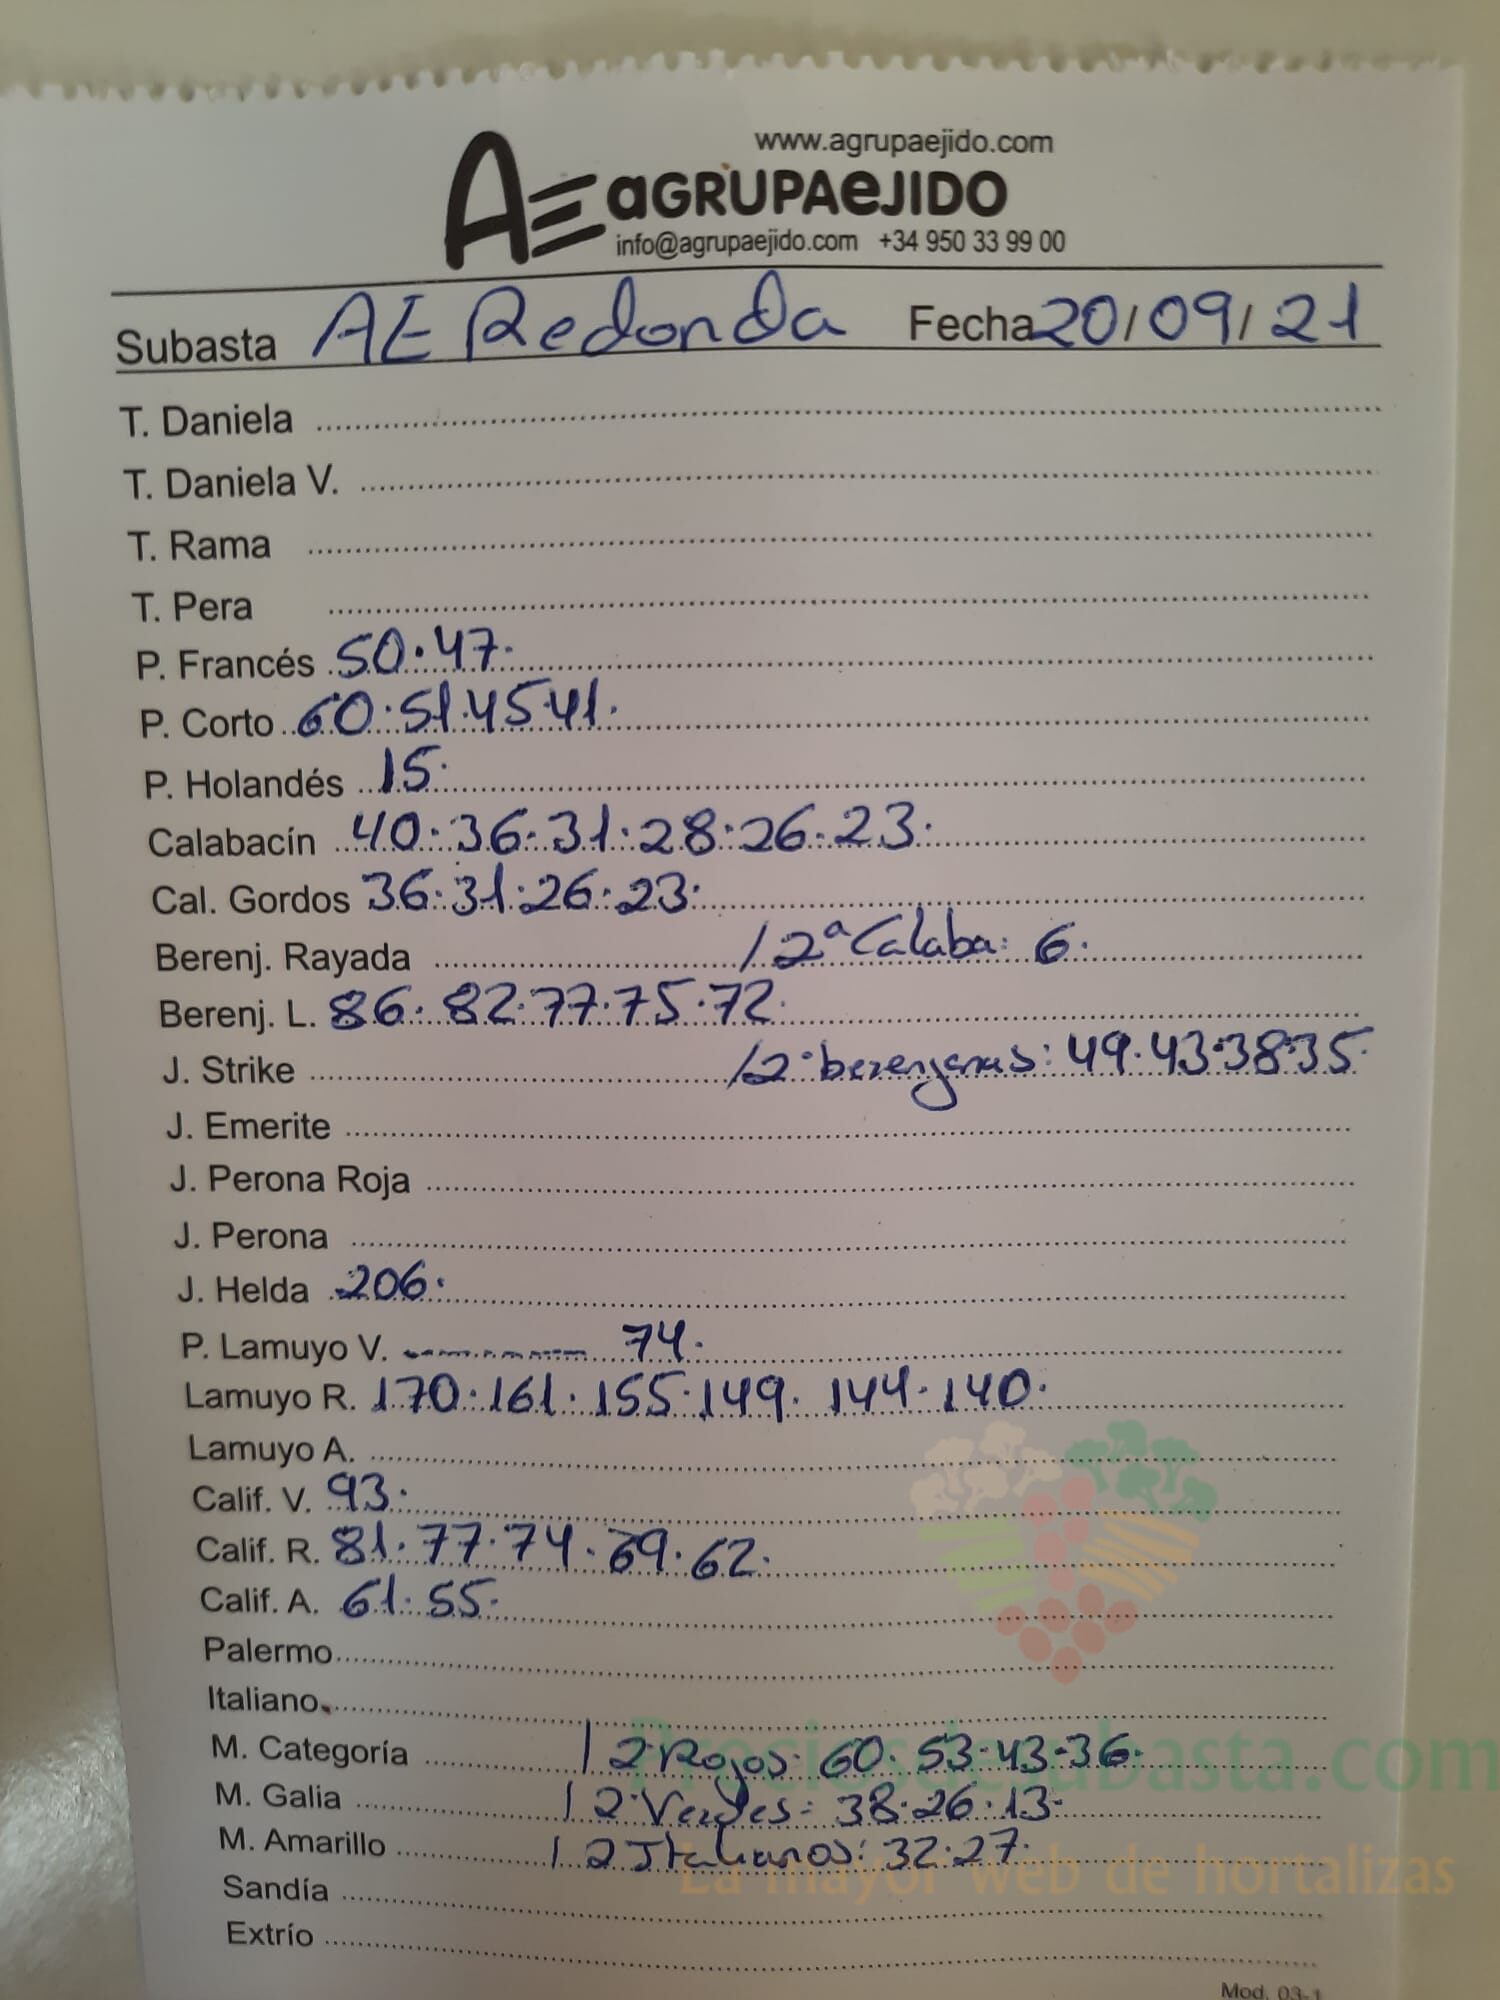 www.agrupaejido.com
AE aGRUPAeJIDO
info@agrupaejido.com +34 950 33 99 00
Subasta AE Redonda Fecha 20/09/21
T. Daniela
T. Daniela V.
T. Rama
T. Pera
P. Francés 50.47.
P. Corto 60.51.45 41.
P. Holandés 15.
Calabacín 40.36.31.28.26.23.
Cal. Gordos 36.31.26.23.
Berenj. Rayada / 2ª Calaba: 6.
Berenj. L. 86.82.77.75.72.
J. Strike / 2ª berenjenas: 49.43.38.35.
J. Emerite
J. Perona Roja
J. Perona
J. Helda 206.
P. Lamuyo V. 74.
Lamuyo R. 170.161.155.149.144.140.
Lamuyo A.
Calif. V. 93.
Calif. R. 81.77.74.69.62.
Calif. A. 61.55.
Palermo
Italiano
M. Categoría / 2ª Rojos: 60.53.43.36.
Preciosdesubasta.com
M. Galia / 2ª Verdes: 38.26.13.
M. Amarillo / 2 Italianos: 32.27.
La mayor web de hortalizas
Sandía
Extrío
Mod. 03-1